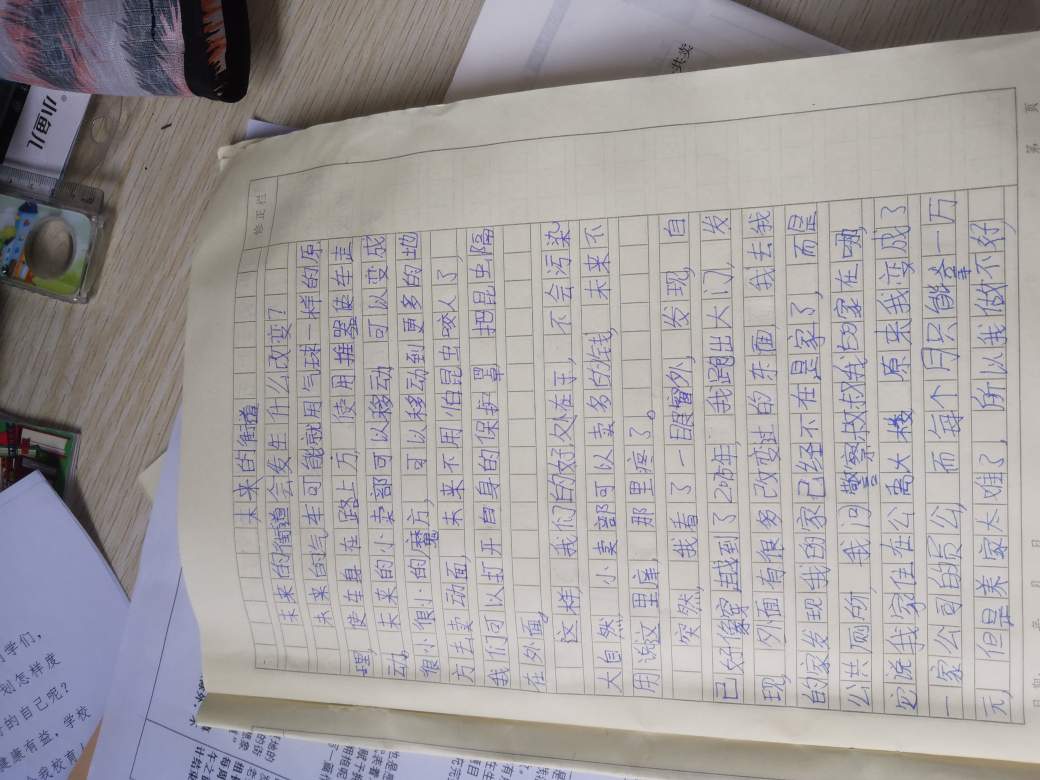 未来的街道
未来的街道会发生什么改变？
未来的汽车可能就用气球一样的原
使车身在路上方，使用推器使车走
嘿，未来的小卖部可以移动，可以变成
动。很小很小的魔方，可以移动到更多的地
方去卖动面，未来不用怕昆虫咬人了，
我们可以打开自身的保护罩，把昆虫隔
在外面。
这样，我们的好处在乎，不会污染
大自然，小卖部可以卖多的钱，未来不
用说这里库，那里疼了。
突然，我看了一眼窗外，发现，自
已好像穿越到了2 年，我跑出大门，发
现，外面有很多改变过的东面，我去我
的家发现我的家已经不在是家了，而是
公共厕所，我问警察叔叔我的家在哪，
它说我家住在公寓大楼，原来我变成了
一家公司的员公，而每个月只能拿一万
元，但是养家太难了，所以我做不好，
修正栏
第 页
小鱼儿
共卖
同学们，
划怎样度
的自己呢？
健康有益，学校
我校育人